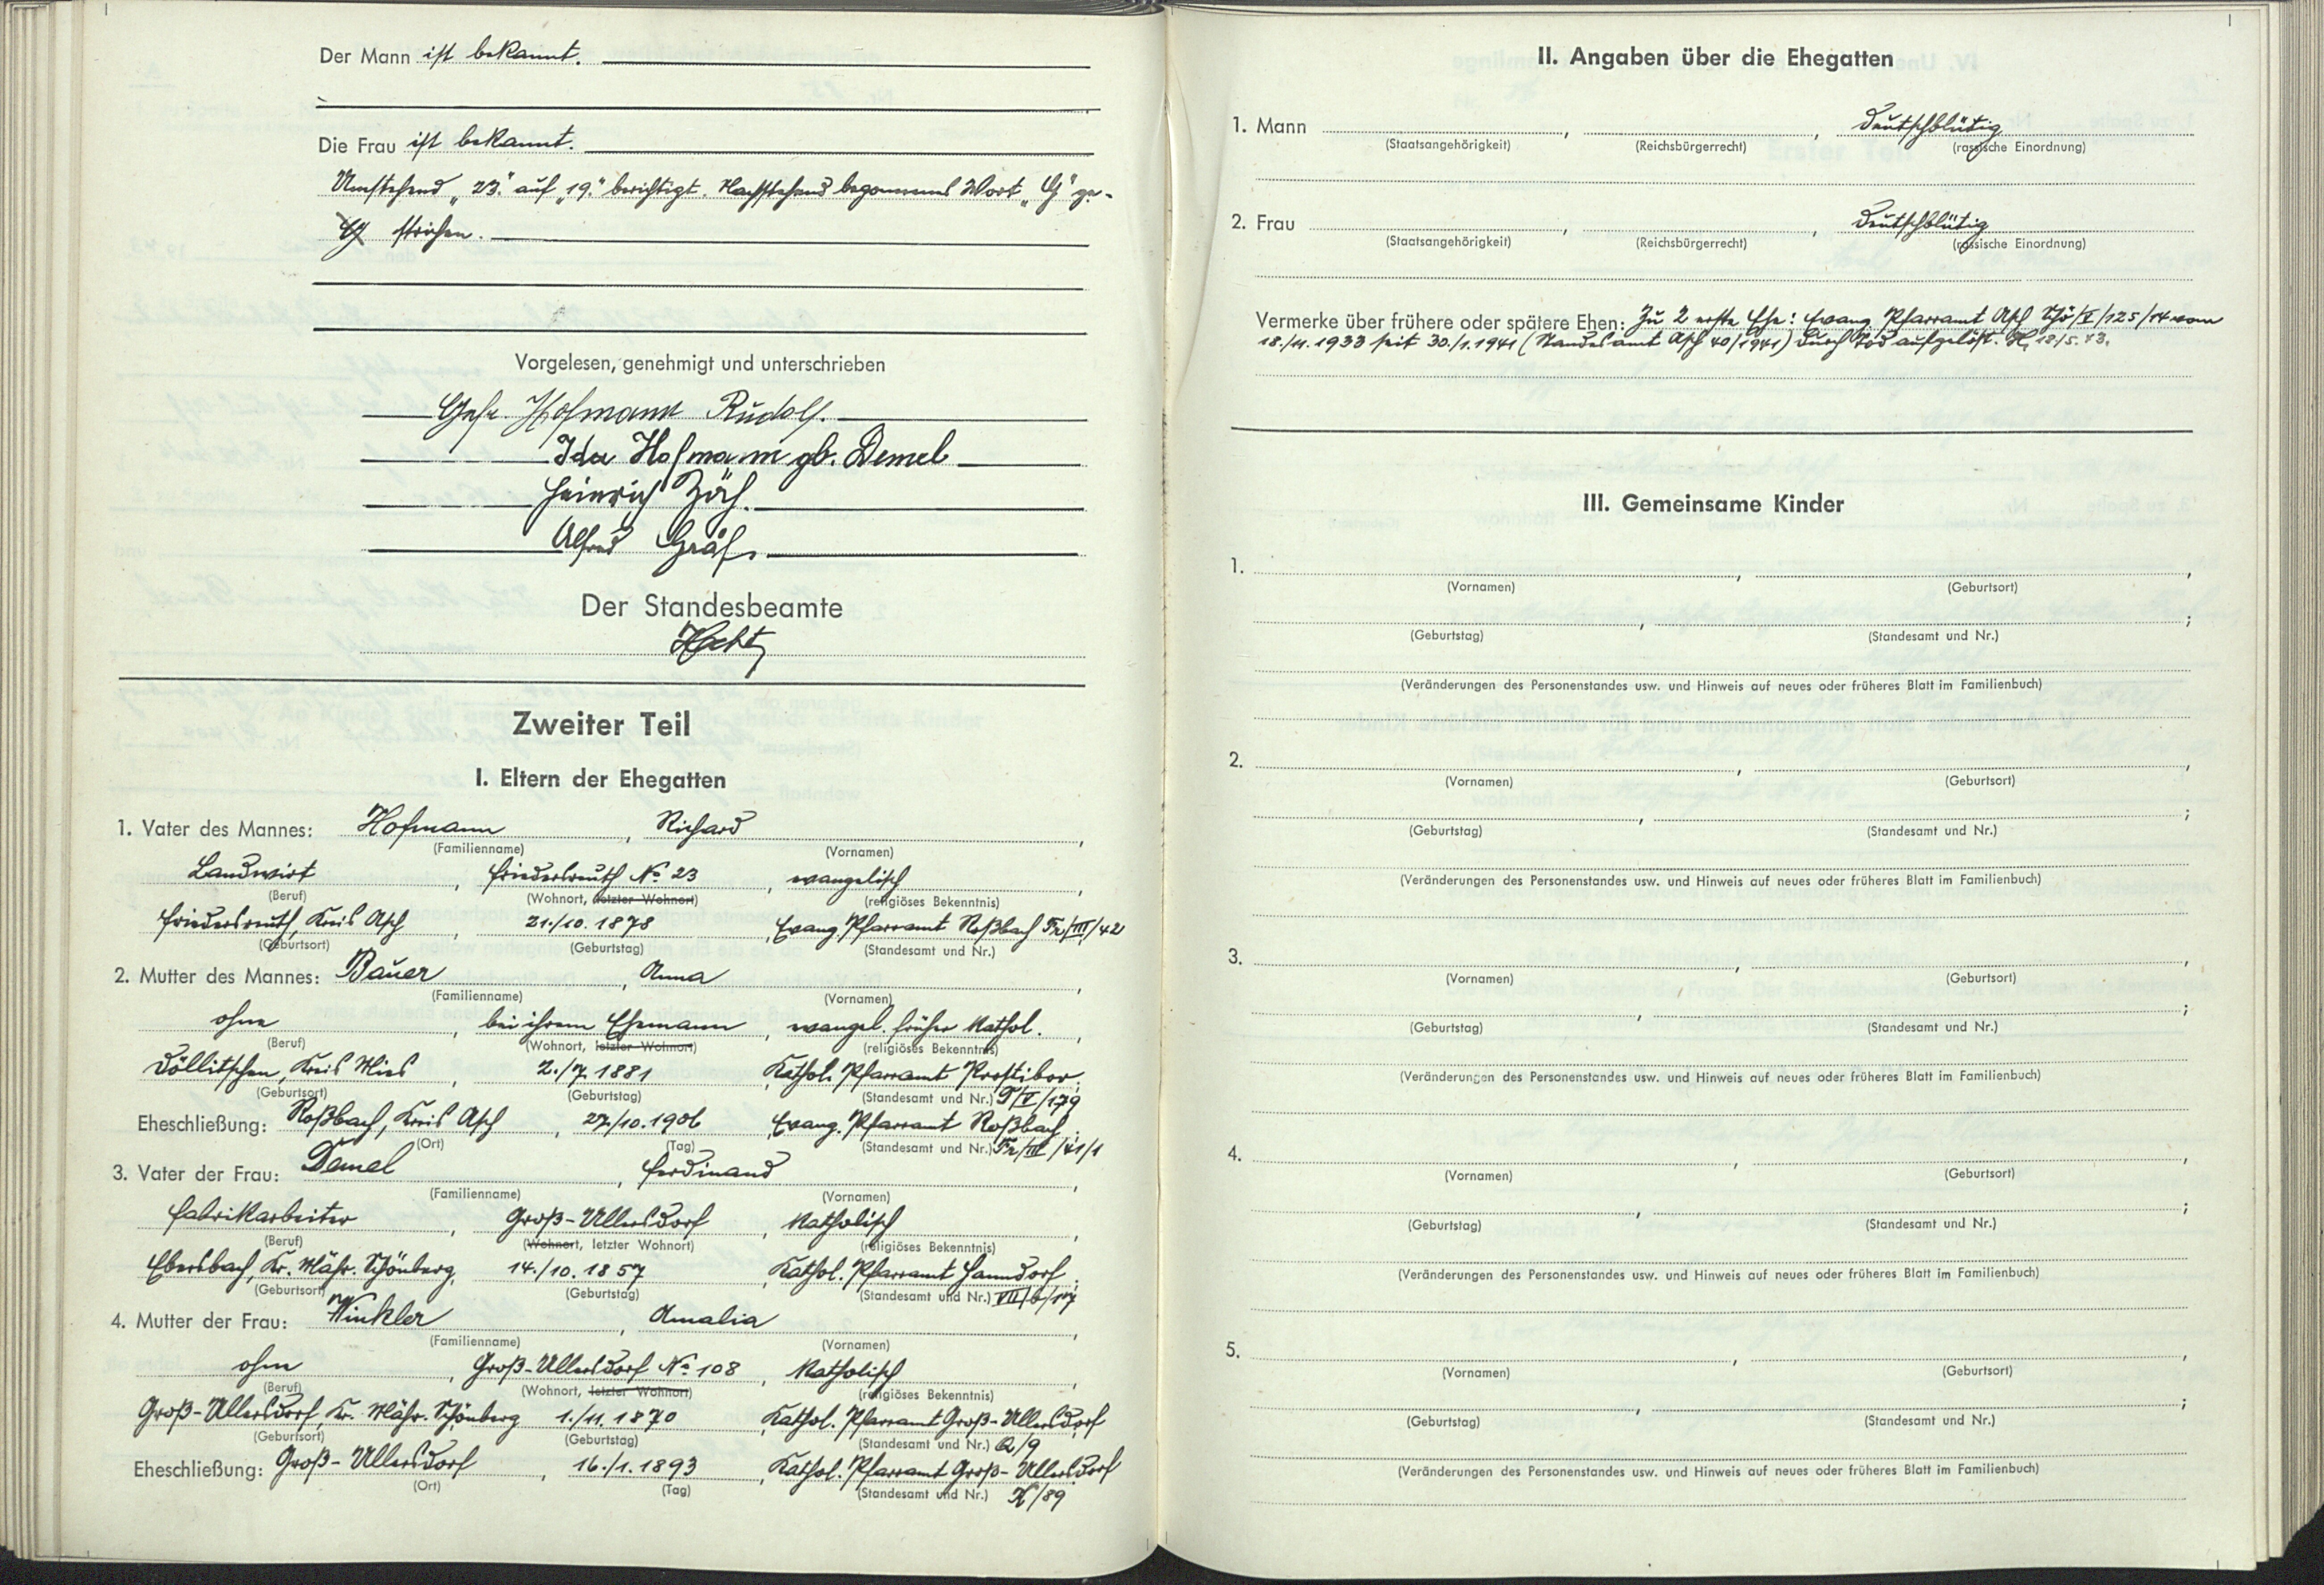 Der Mann ist bekannt.
Die Frau ist bekannt.
Umstehend „23." auf „19." berichtigt. Nachstehend begonnenes Wort „G" ge-
G strichen.
Vorgelesen, genehmigt und unterschrieben
Gefr. Hofmann Rudolf.
Ida Hofmann gb. Demel
Heinrich
Alfred
Der Standesbeamte
Zweiter Teil
I. Eltern der Ehegatten
1. Vater des Mannes: Hofmann, Richard,
(Familienname) (Vornamen)
Landwirt, Friedersreuth No. 23, evangelisch,
(Beruf) (Wohnort, letzter Wohnort) (religiöses Bekenntnis)
Friedersreuth, Kreis Asch, 21./10. 1878, Evang. Pfarramt Roßbach Fr/III/42
(Geburtsort) (Geburtstag) (Standesamt und Nr.)
2. Mutter des Mannes: Bauer, Anna,
(Familienname) (Vornamen)
ohne, bei ihrem Ehemann, evangel. früher kathol.,
(Beruf) (Wohnort, letzter Wohnort) (religiöses Bekenntnis)
Döllitschen, Kreis Mies, 2./7. 1881, Kathol. Pfarramt Prostibor;
(Geburtsort) (Geburtstag) (Standesamt und Nr.) T/V/179
Eheschließung: Roßbach, Kreis Asch, 27./10. 1906, Evang. Pfarramt Roßbach;
(Ort) (Tag) (Standesamt und Nr.) Fr/III/41/1
3. Vater der Frau: Demel, Ferdinand,
(Familienname) (Vornamen)
Fabrikarbeiter, Groß-Ullersdorf, katholisch,
(Beruf) (Wohnort, letzter Wohnort) (religiöses Bekenntnis)
Ebersbach, Kr. Mähr. Schönberg, 14./10. 1857, Kathol. Pfarramt Hannsdorf;
(Geburtsort) (Geburtstag) (Standesamt und Nr.) VII/6/17
4. Mutter der Frau: Winkler, Amalia,
(Familienname) (Vornamen)
ohne, Groß-Ullersdorf No. 108, katholisch,
(Beruf) (Wohnort, letzter Wohnort) (religiöses Bekenntnis)
Groß-Ullersdorf, Kr. Mähr. Schönberg 1./11. 1870, Kathol. Pfarramt Groß-Ullersdorf
(Geburtsort) (Geburtstag) (Standesamt und Nr.) Q/9
Eheschließung: Groß-Ullersdorf, 16./1. 1893, Kathol. Pfarramt Groß-Ullersdorf
(Ort) (Tag) (Standesamt und Nr.) K/89
II. Angaben über die Ehegatten
1. Mann , , deutschblütig
(Staatsangehörigkeit) (Reichsbürgerrecht) (rassische Einordnung)
2. Frau , , deutschblütig
(Staatsangehörigkeit) (Reichsbürgerrecht) (rassische Einordnung)
Vermerke über frühere oder spätere Ehen: Zu 2 erste Ehe: Evang. Pfarramt Asch Schö/V/125/14 vom
18./11. 1933 seit 30./1. 1941 (Standesamt Asch 40/1941) durch Tod aufgelöst. H. 18./5. 43.
III. Gemeinsame Kinder
1. , ,
(Vornamen) (Geburtsort)
, ;
(Geburtstag) (Standesamt und Nr.)
(Veränderungen des Personenstandes usw. und Hinweis auf neues oder früheres Blatt im Familienbuch)
2. , ,
(Vornamen) (Geburtsort)
, ;
(Geburtstag) (Standesamt und Nr.)
(Veränderungen des Personenstandes usw. und Hinweis auf neues oder früheres Blatt im Familienbuch)
3. , ,
(Vornamen) (Geburtsort)
, ;
(Geburtstag) (Standesamt und Nr.)
(Veränderungen des Personenstandes usw. und Hinweis auf neues oder früheres Blatt im Familienbuch)
4. , ,
(Vornamen) (Geburtsort)
, ;
(Geburtstag) (Standesamt und Nr.)
(Veränderungen des Personenstandes usw. und Hinweis auf neues oder früheres Blatt im Familienbuch)
5. , ,
(Vornamen) (Geburtsort)
, ;
(Geburtstag) (Standesamt und Nr.)
(Veränderungen des Personenstandes usw. und Hinweis auf neues oder früheres Blatt im Familienbuch)